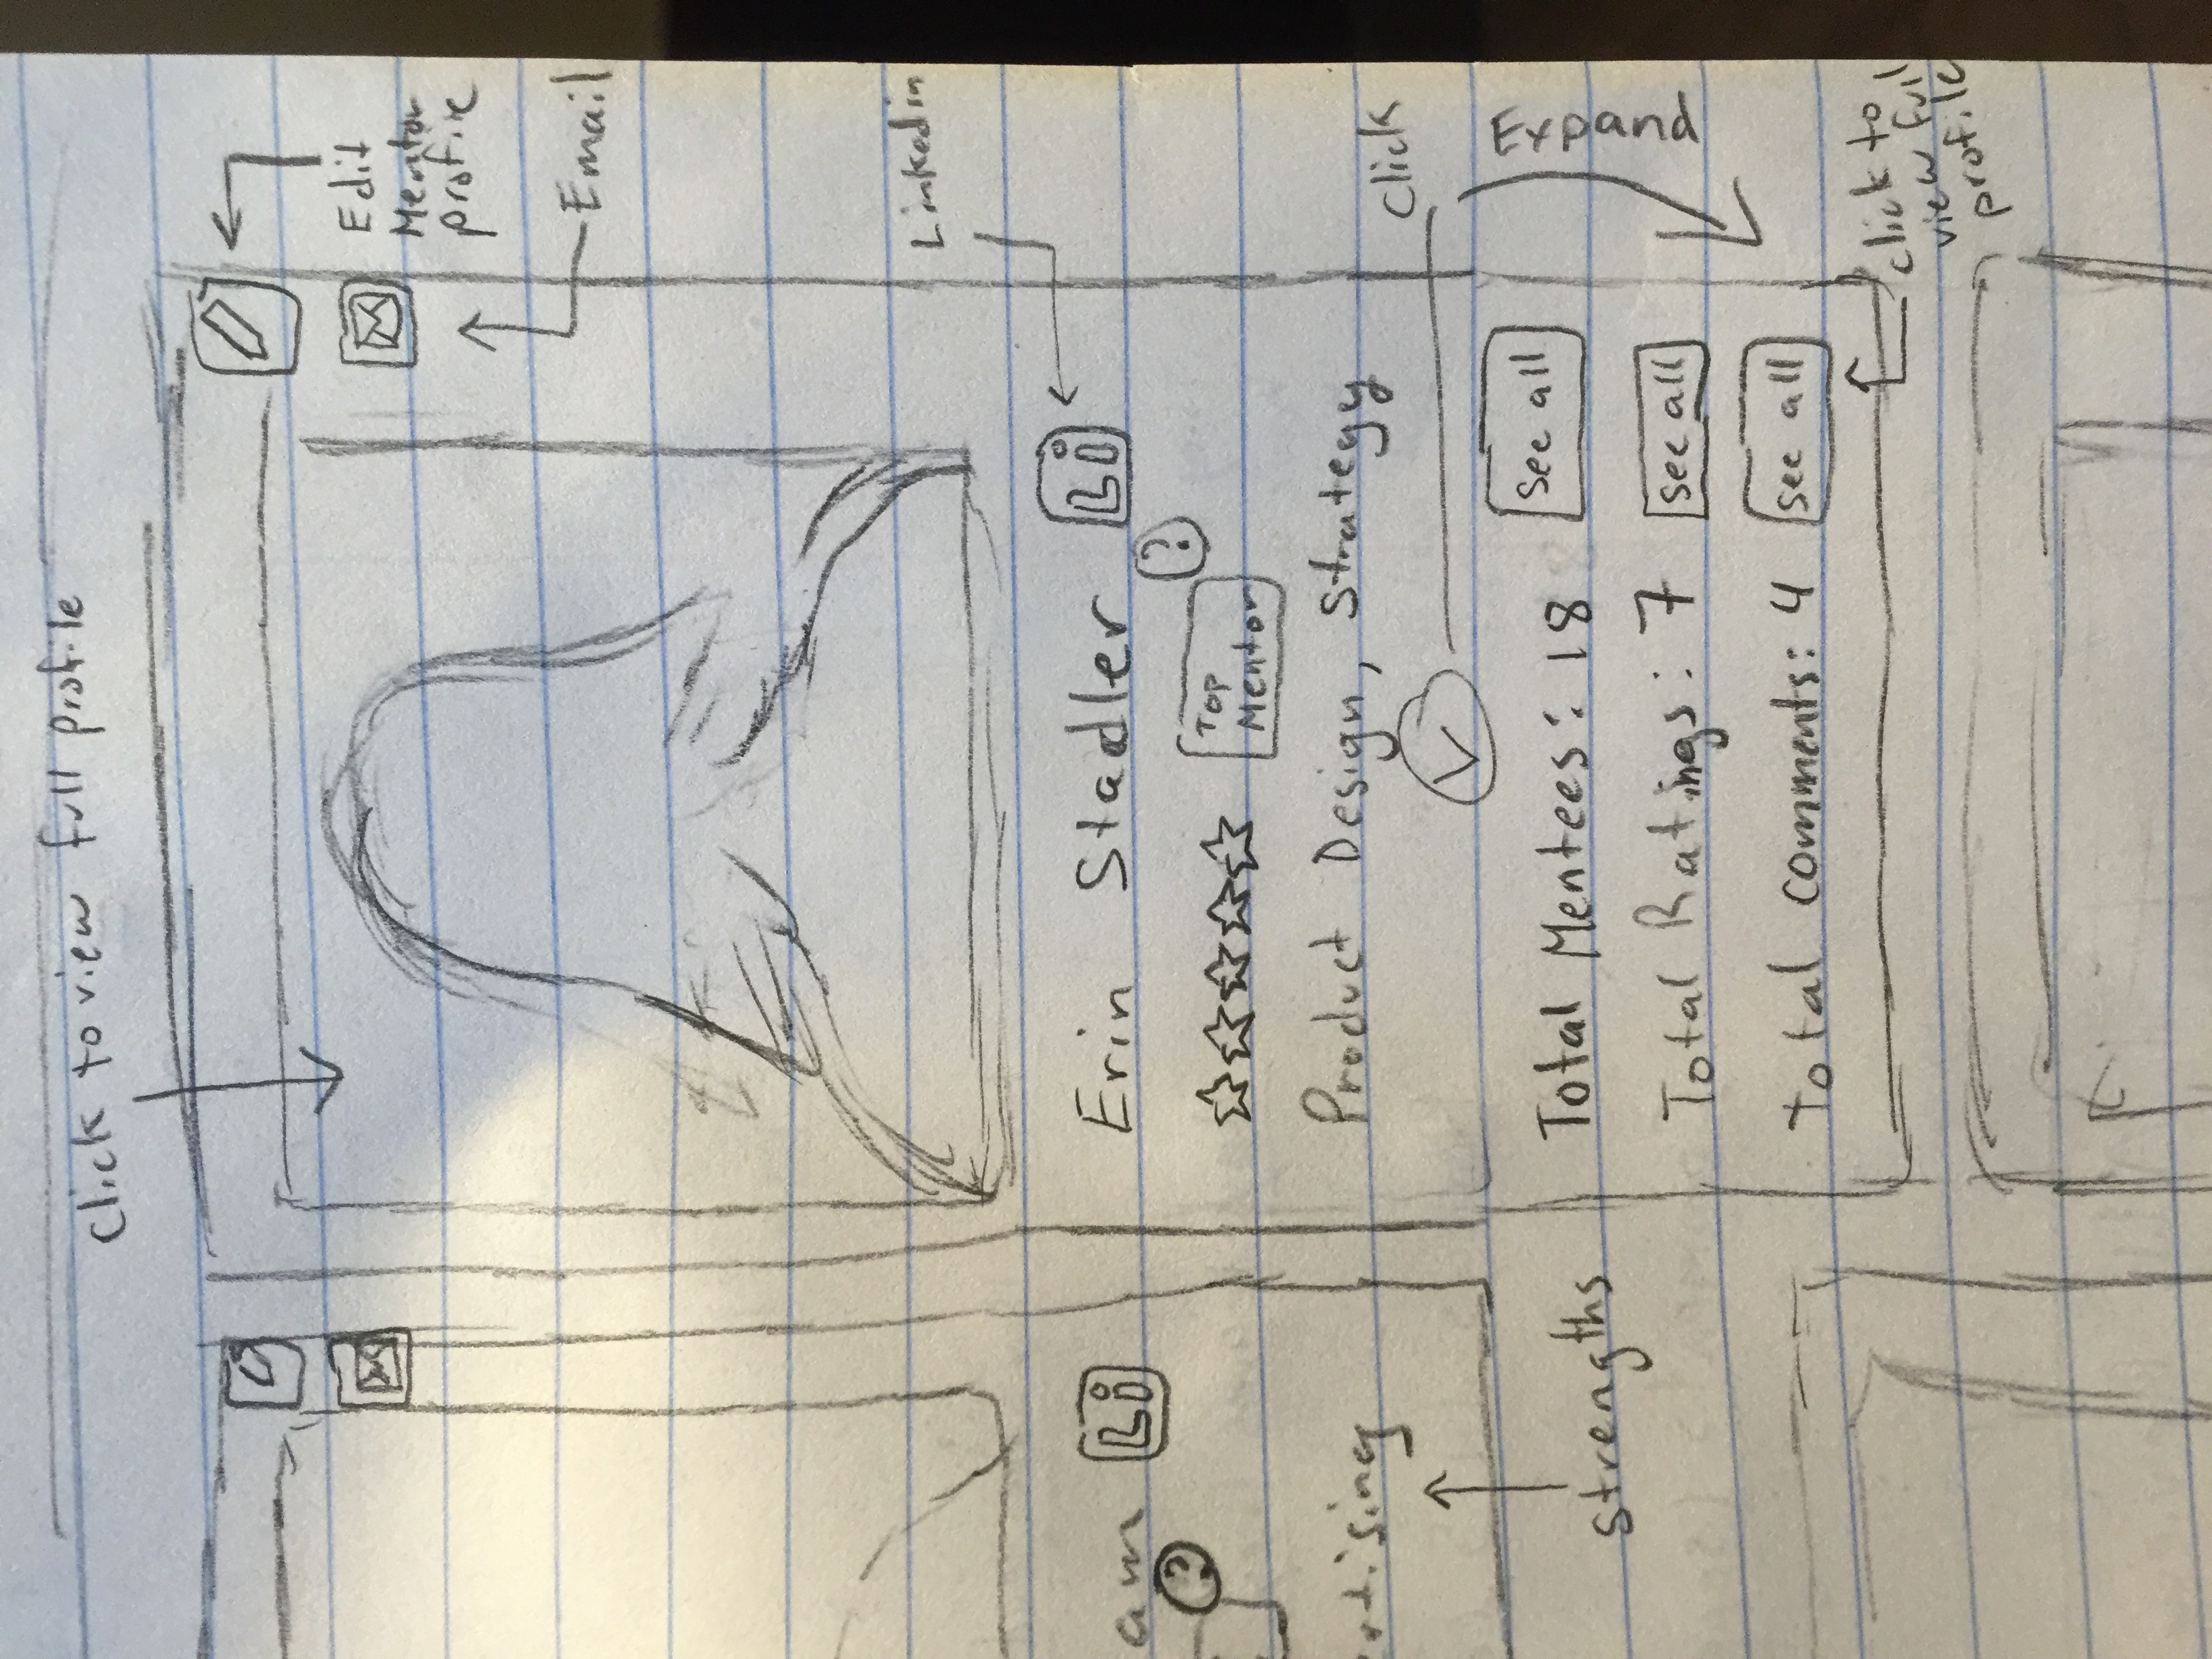 Click to view full profile
Edit
Mentor
profile
Email
Linkedin
am Li
?
Erin Stadler Li
?
Top
Mentor
rtising
Product Design, Strategy
Click
Expand
strengths
Total Mentees: 18 see all
Total Ratings: 7 see all
Total comments: 4 see all
click to
view full
profile